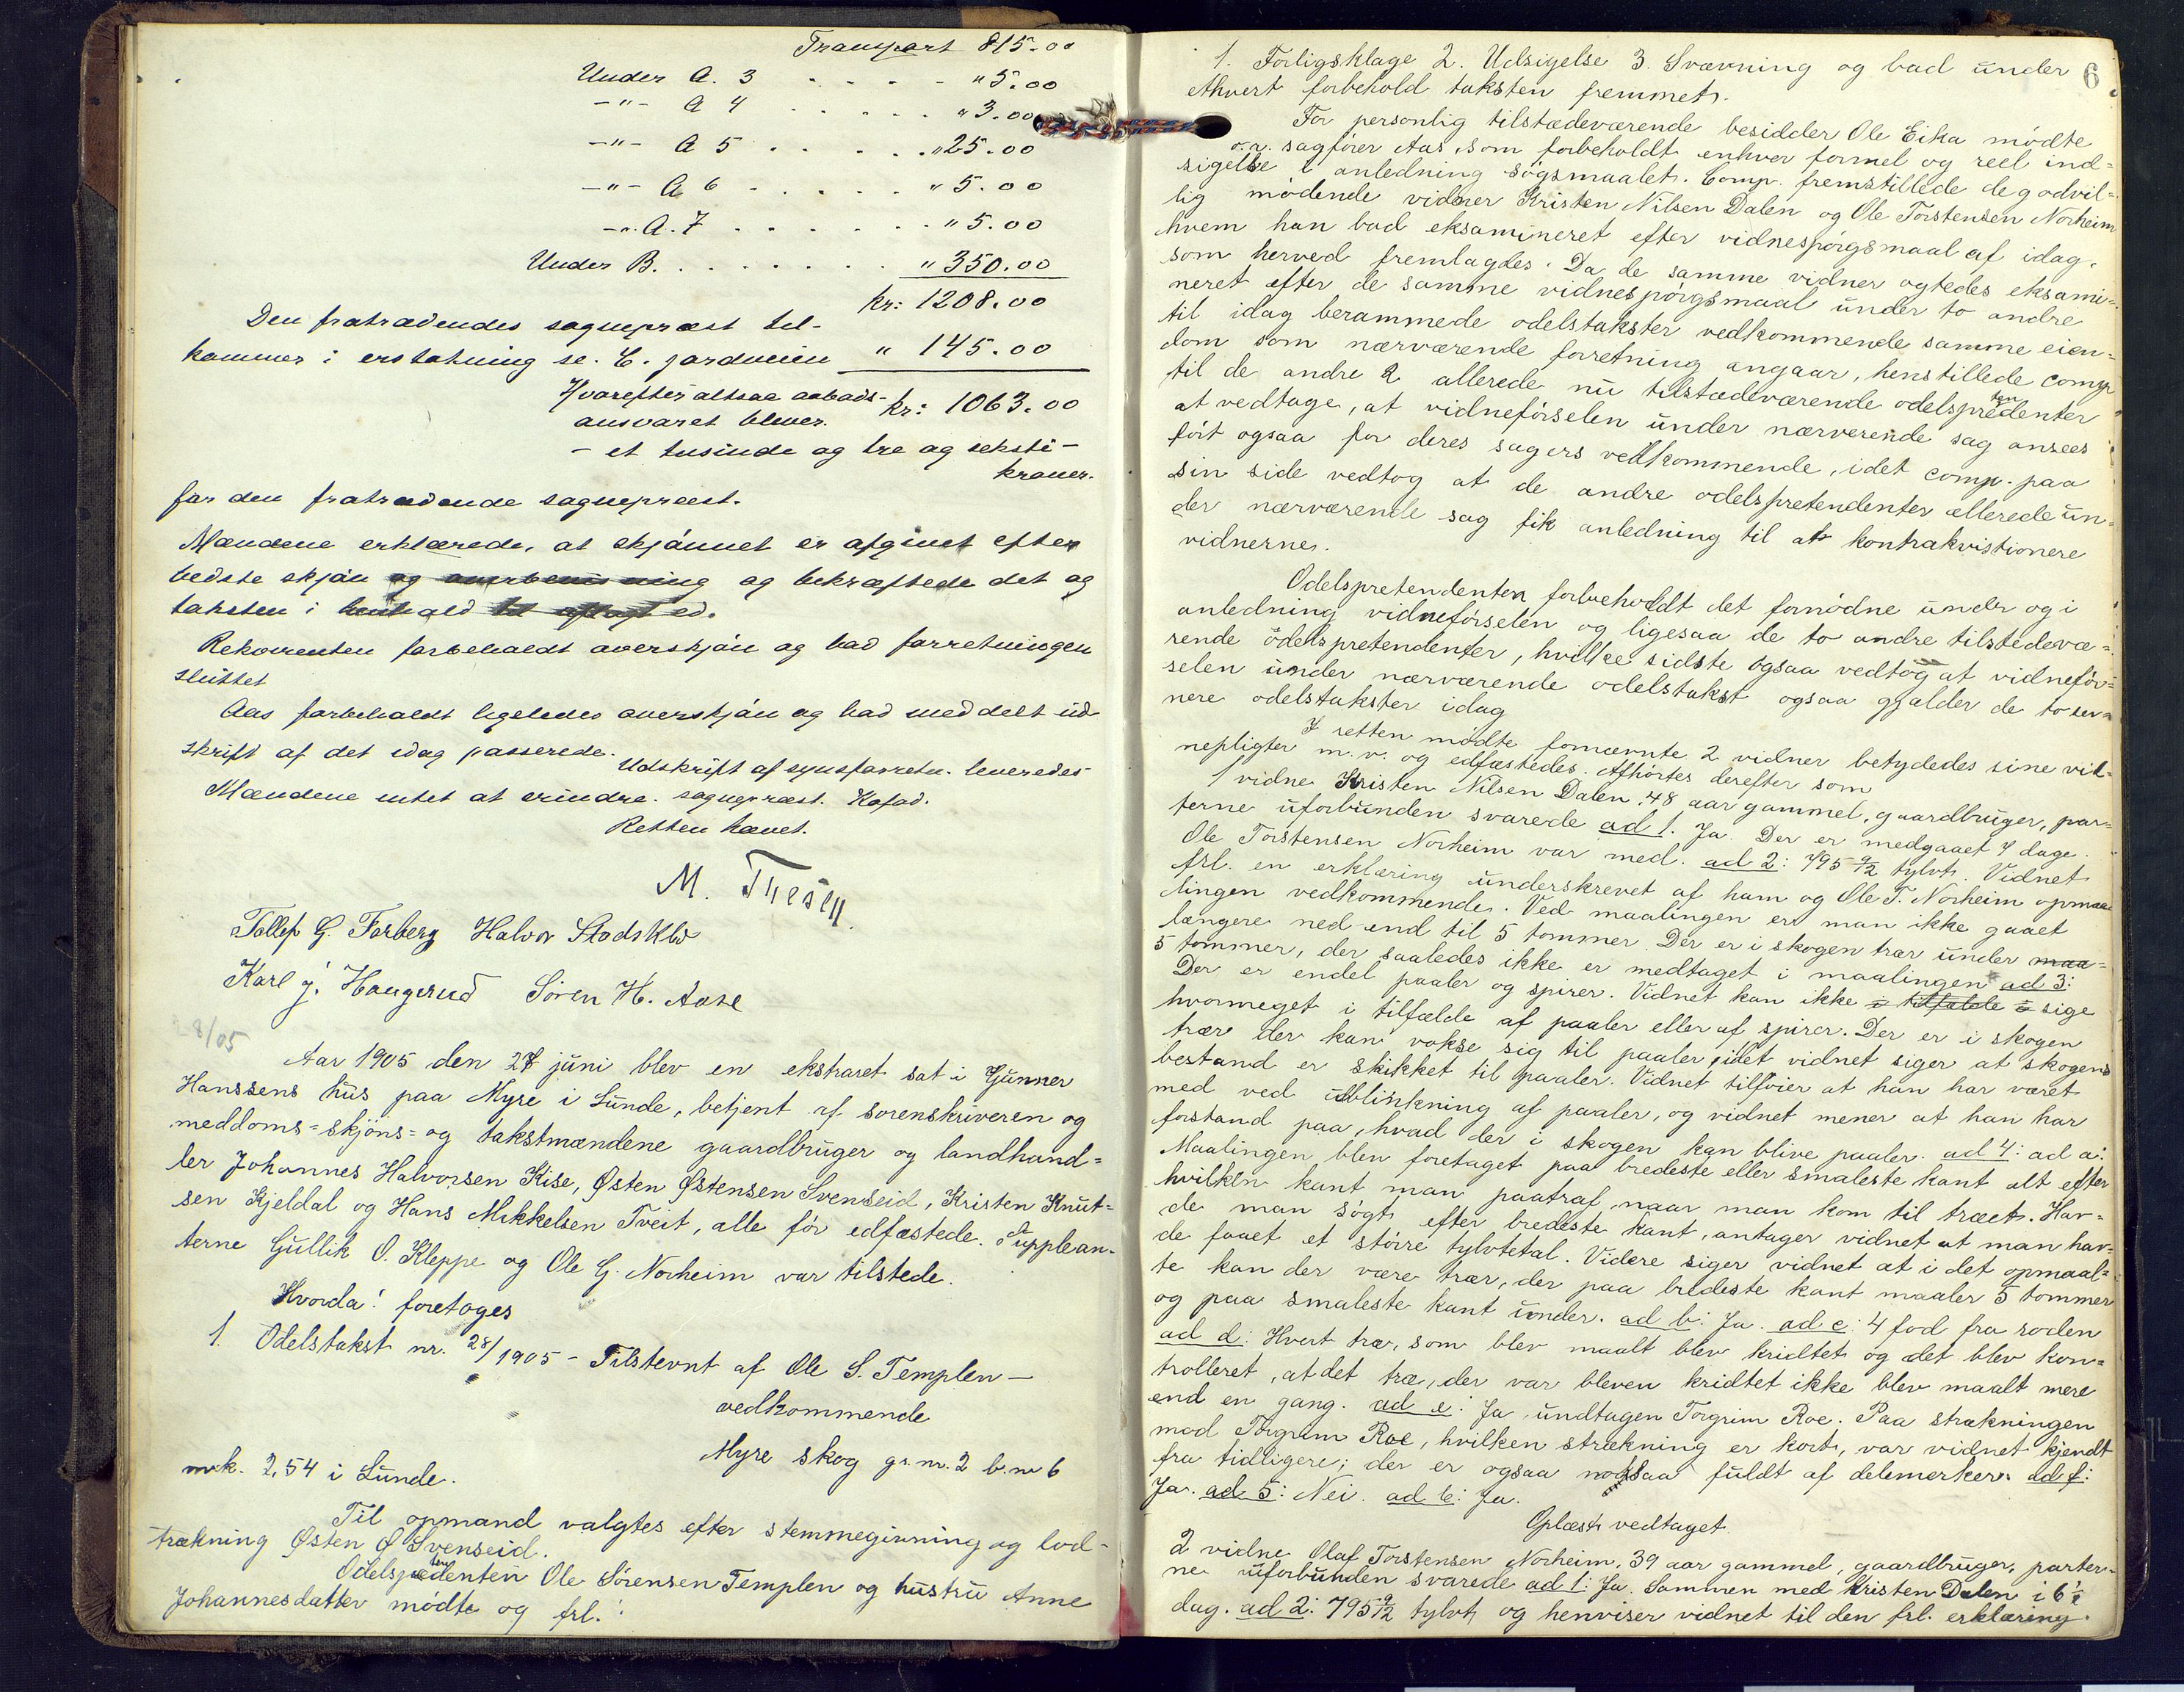 Transport 815.00
Under A. 3 . . . . - "5.00
-"- A 4 . . . . . "3.00
-"- A 5 . . . . . "25.00
-"- A 6 . . . . . "5.00
-". A. 7 . . . . . . . "5.00
Under B. . . . . . . . . "350.00
kr: 1208.00
Den fratrædendes sognepræst til-
kommer i erstatning se. C. jordveien " 145.00
Hvorefter altsaa aabods- kr: 1063.00
ansvaret bliver.
- et tusinde og tre og seksti -
kroner.
for den fratrædende sognepræst.
Mændene erklærede, at skjønnet er afgivet efter
bedste skjøn og bekræftede det og
taksten i henhold ed.
Rekvirenten forbeholdt overskjøn og bad forretningen
sluttet
Aas forbeholdt ligeledes overskjøn og bad meddelt ud-
skrift af det idag passerede.
Udskrift af synsforretn. leveredes
Mændene intet at erindre. sognepræst. Kofod.
Retten hævet.
M. Thesen.
Tollef G. Forberg Halvor Stadsklev
Karl J. Haugerud Søren H. Aase
28/05
Aar 1905 den 27 juni blev en ekstraret sat i Gunner
Hanssens hus paa Myre i Lunde, betjent af sorenskriveren og
meddoms-skjöns- og takstmændene gaardbruger og landhand-
ler Johannes Halvorsen Kise, Østen Østensen Svenseid, Kristen Knut-
sen Kjeldal og Hans Mikkelsen Tveit, alle før edfæstede. Supplean-
terne Gullik O. Kleppe og Ole G. Norheim var tilstede.
Hvorda! foretoges
1. Odelstakst nr. 28/1905 - Tilstevnt af Ole S. Templen -
vedkommende
Myre skog gr. nr. 2 b. nr 6
mrk. 2,54 i Lunde.
Til opmand valgtes efter stemmegivning og lod-
trækning Østen Ø Svenseid.
Odelsprætendenten Ole Sørensen Templen og hustru Anne
Johannesdatter mødte og frl.:
6
1. Forligsklage 2. Udsigelse 3. Stævning og bad under
ethvert forbehold taksten fremmet.
For personlig tilstædeværende besidder Ole Eika mødte
o.r. sagfører Aas, som forbeholdt enhver formel og reel ind-
sigelse i anledning søgsmaalet. Comp. fremstillede de godvil-
lig mødende vidner Kristen Nilsen Dalen og Ole Torstensen Norheim
hvem han bad eksamineret efter vidnespørgsmaal af idag.
som herved fremlagdes. Da de samme vidner agtedes eksami-
neret efter de samme vidnespørgsmaal under to andre
til idag berammede odelstakster vedkommende samme eien-
dom som nærværende forretning angaar, henstillede comp
til de andre 2 allerede nu tilstædeværende odelspretendenter
at vedtage, at vidneførselen under nærværende sag ansees
ført ogsaa for deres sagers vedkommende, idet comp. paa
sin side vedtog at de andre odelspretendenter allerede un-
der nærværende sag fik anledning til at kontrakvistionere
vidnerne.
Odelspretendenten forbeholdt det fornødne under og i
anledning vidneførselen og ligesaa de to andre tilstedevæ-
rende odelspretendenter, hvilke sidste ogsaa vedtog at vidnefør-
selen under nærværende odelstakst ogsaa gjælder de to sen-
nere odelstakster idag
I retten mødte fornævnte 2 vidner betydedes sine vid-
nepligter m. v. og edfæstedes. Afhørtes derefter som
1 vidne Kristen Nilsen Dalen, 48 aar gammel, gaardbruger, par-
terne uforbunden svarede ad 1. Ja. Der er medgaaet 7 dage.
Ole Torstensen Norheim var med. ad 2: 795 9/12 tylvt. Vidnet
frl. en erklæring underskrevet af ham og Ole T. Norheim opmaa-
lingen vedkommende. Ved maalingen er man ikke gaaet
længere ned end til 5 tommer. Der er i skogen trær under maa-
5 tommer, der saaledes ikke er medtaget i maalingen ad 3:
Der er endel paaler og spirer. Vidnet kan ikke i tilfælde i sige
hvormeget i tilfælde af paaler eller af spirer. Der er i skogen
trær der kan vokse sig til paaler, idet vidnet siger at skogens
bestand er skikket til paaler. Vidnet tilføier at han har været
med ved udblinkning af paaler, og vidnet mener at han har
forstand paa, hvad der i skogen kan blive paaler. ad 4: ad a:
Maalingen blev foretaget paa bredeste eller smaleste kant alt efter
hvilken kant man paatraf, naar man kom til træet. Hav-
de man søgt efter bredeste kant, antager vidnet at man hav-
de faaet et større tylvtetal. Videre siger vidnet at i det opmaal-
te kan der være trær, der paa bredeste kant maaler 5 tommer
og paa smaleste kant under. ad b: Ja. ad c: 4 fod fra roden
ad d: Hvert træ, som blev maalt blev kridtet og det blev kon-
trolleret, at det træ, der var bleven kridtet ikke blev maalt mere
end en gang. ad e: Ja undtagen Torgrim Roe. Paa strækningen
mod Torgrim Roe, hvilken strækning er kort, var vidnet kjendt
fra tidligere; der er ogsaa noksaa fuldt af delemerker. ad f:
Ja. ad 5: Nei. ad 6: Ja.
Oplæst vedtaget.
2 vidne Olaf Torstensen Norheim, 39 aar gammel, gaardbruger, parter-
ne uforbunden svarede ad 1: Ja. Sammen med Kristen Dalen i 6 1/2
dag. ad 2: 795 9/12 tylvt og henviser vidnet til den frl. erklæring.